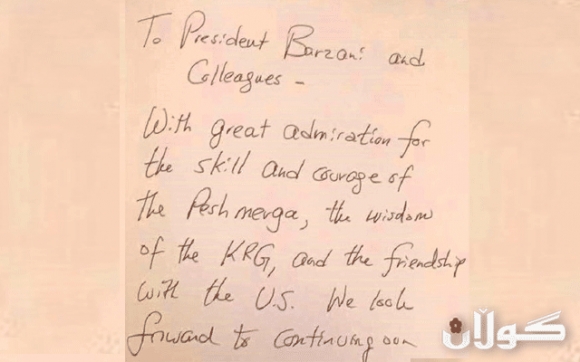 To President Barzani and
Colleagues -
With great admiration for
the skill and courage of
the Peshmerga, the wisdom
of the KRG, and the friendship
with the U.S. We look
forward to continuing our
كولان